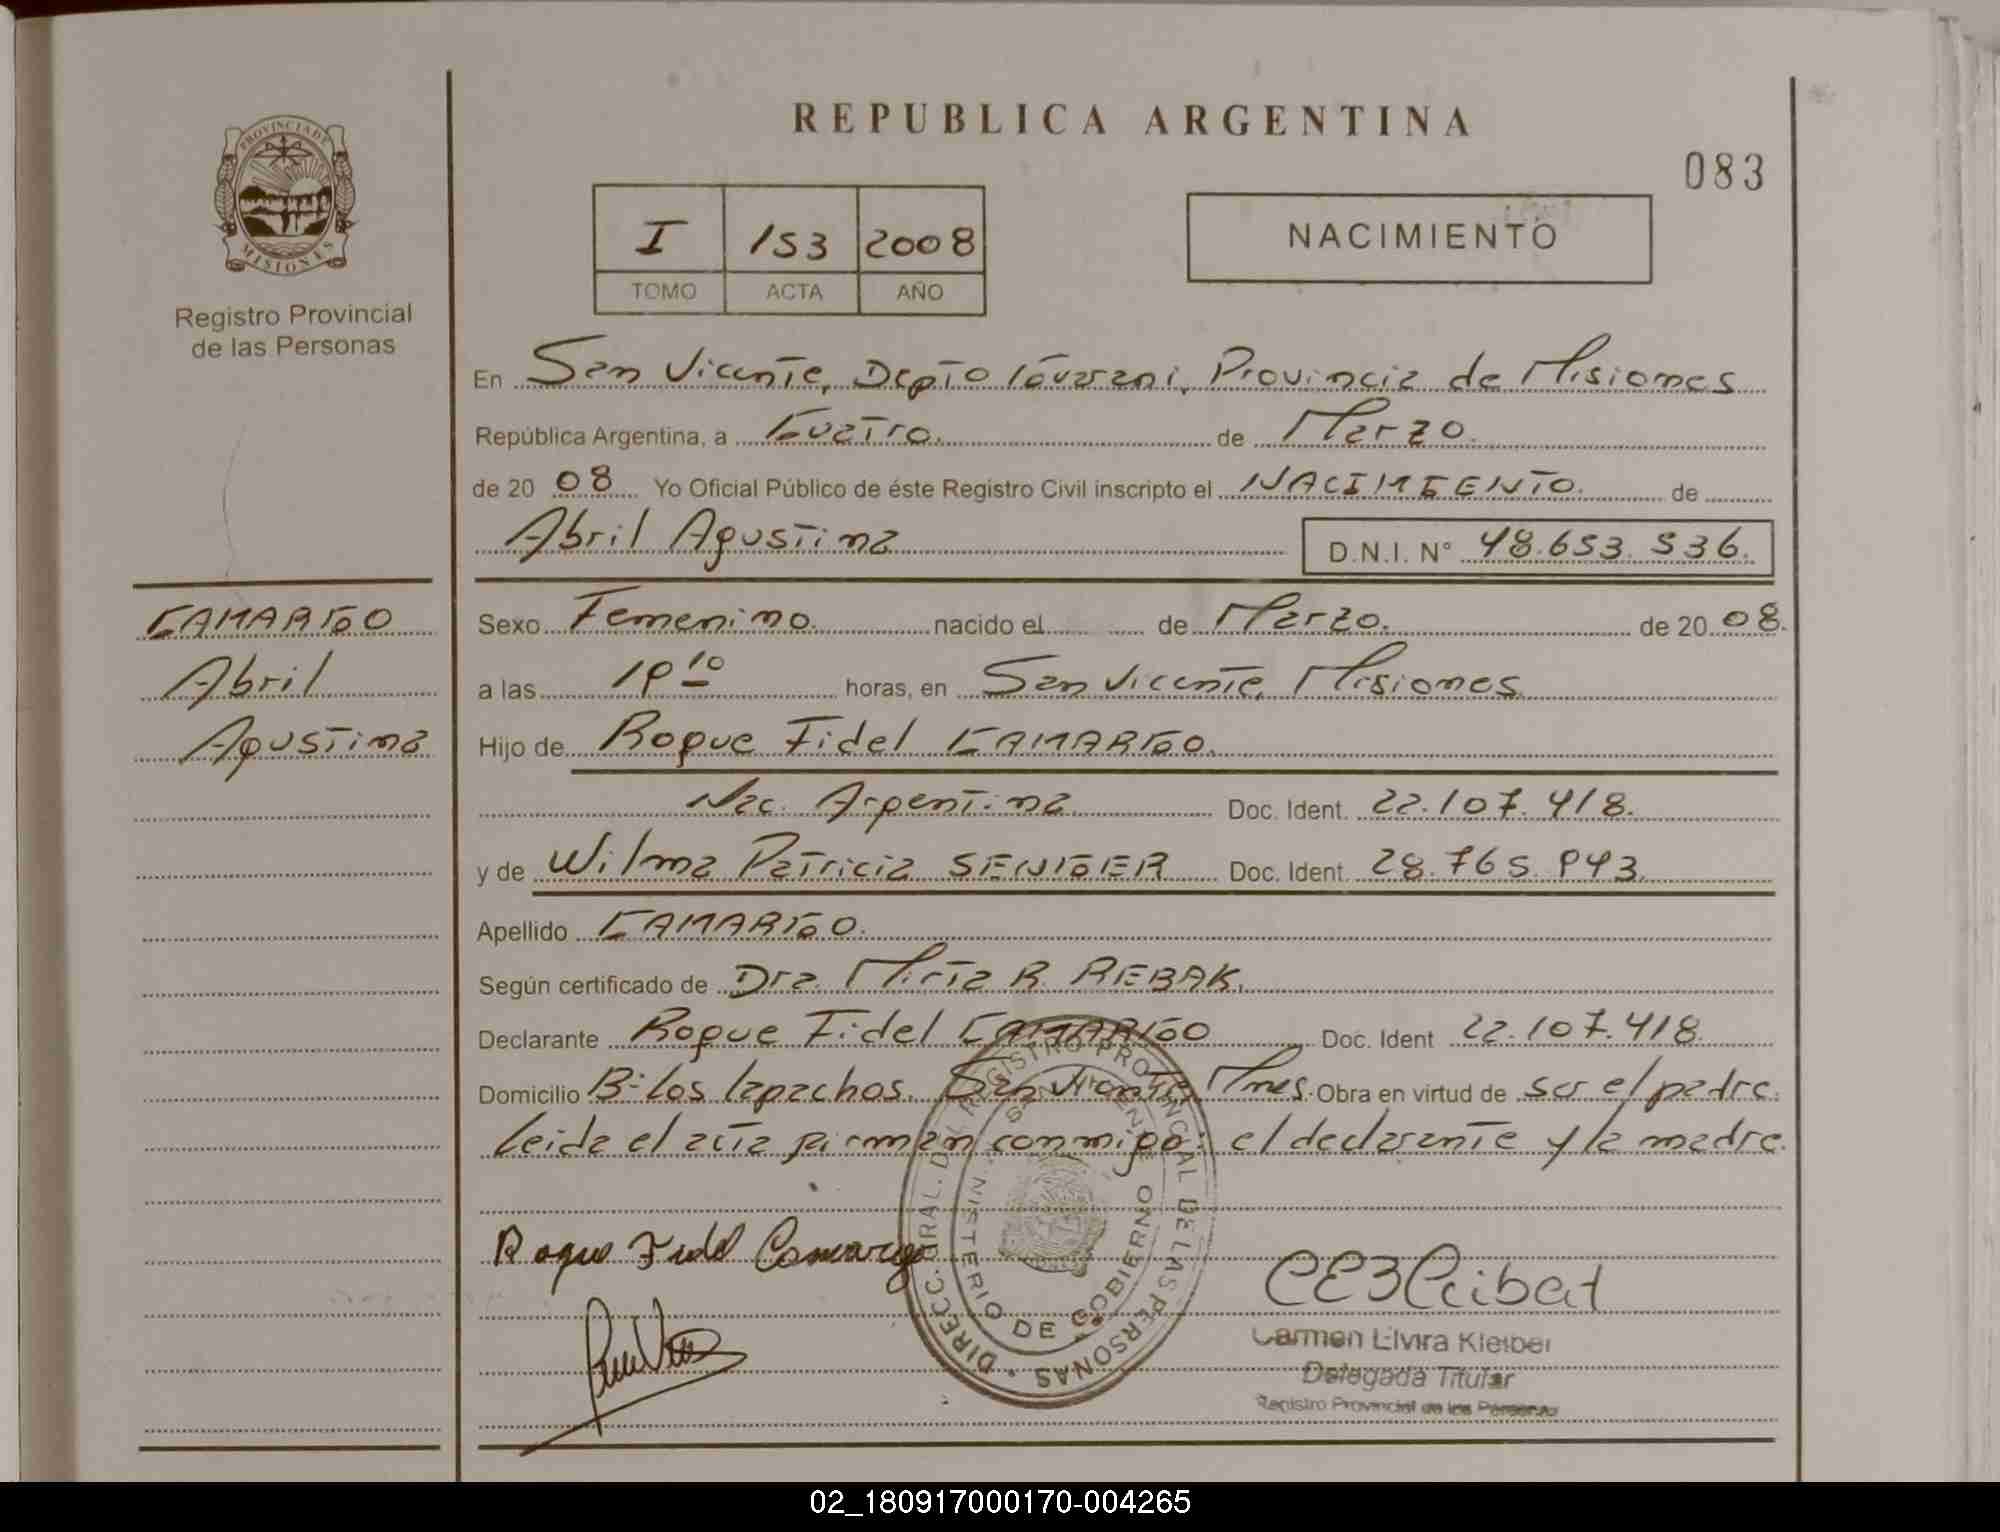 REPUBLICA ARGENTINA
083
PROVINCIA DE MISIONES
Registro Provincial
de las Personas
I 153 2008
TOMO ACTA AÑO
NACIMIENTO
En San Vicente, Depto Guarani, Provincia de Misiones
República Argentina, a Cuatro. de Marzo.
de 20 08 Yo Oficial Público de éste Registro Civil inscripto el NACIMIENTO. de
Abril Agustina D.N.I. N° 48.653.536.
CAMARGO
Abril
Agustina
Sexo Femenino. nacido el de Marzo. de 20 08.
a las 19 10 horas, en San Vicente, Misiones
Hijo de Roque Fidel CAMARGO.
Nac. Argentina Doc. Ident. 22.107.418.
y de Wilma Patricia SENGER Doc. Ident. 28.765.943.
Apellido CAMARGO.
Según certificado de Dra. Mirta R. REBAK.
Declarante Roque Fidel CAMARGO Doc. Ident 22.107.418.
Domicilio B- Los lapachos. San Vicente, Mnes. Obra en virtud de ser el padre.
Leida el acta firman conmigo: el declarante y la madre.
Roque Fidel Camargo
DIRECC. GRAL. DEL REGISTRO PROVINCIAL DE LAS PERSONAS
SAN VICENTE
MINISTERIO DE GOBIERNO
Carmen Elvira Kleiber
Delegada Titular
Registro Provincial de las Personas
02_180917000170-004265